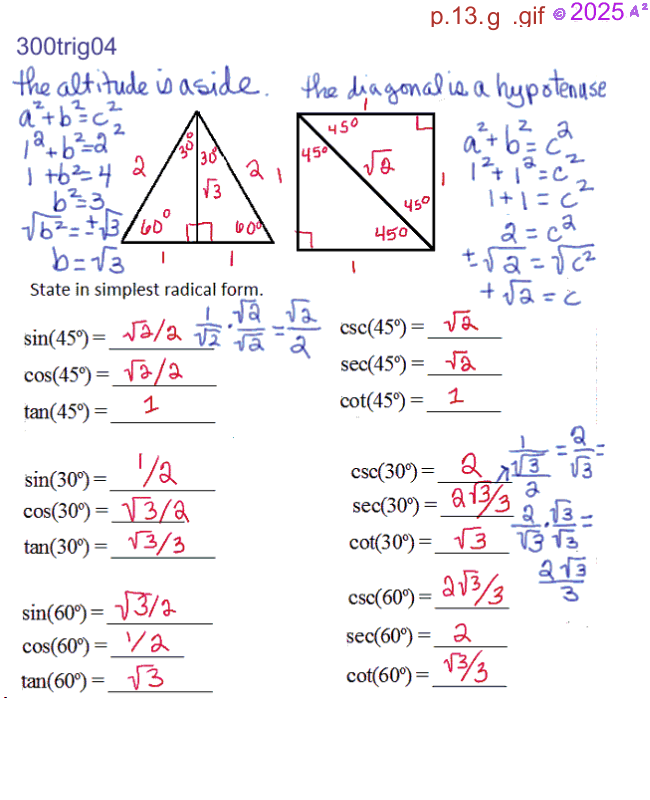 p.13.g .gif © 2025 A²
300trig04
the altitude is a side. the diagonal is a hypotenuse
a²+b²=c²
1²+b²=2²
1+b²=4
b²=3
√b²=±√3
b=√3
30° 30°
2 2
√3
60° 60°
1 1
1
45°
45°
√2
1 1
45°
45°
1
a²+b²=c²
1²+1²=c²
1+1=c²
2=c²
±√2=√c²
+√2=c
State in simplest radical form.
sin(45º)= √2/2 1/√2 · √2/√2 = √2/2
cos(45º)= √2/2
tan(45º)= 1
csc(45º)= √2
sec(45º)= √2
cot(45º)= 1
sin(30º)= 1/2
cos(30º)= √3/2
tan(30º)= √3/3
csc(30º)= 2
sec(30º)= 2√3/3
cot(30º)= √3
1/(√3/2) = 2/√3 =
2/√3 · √3/√3 =
2√3/3
sin(60º)= √3/2
cos(60º)= 1/2
tan(60º)= √3
csc(60º)= 2√3/3
sec(60º)= 2
cot(60º)= √3/3